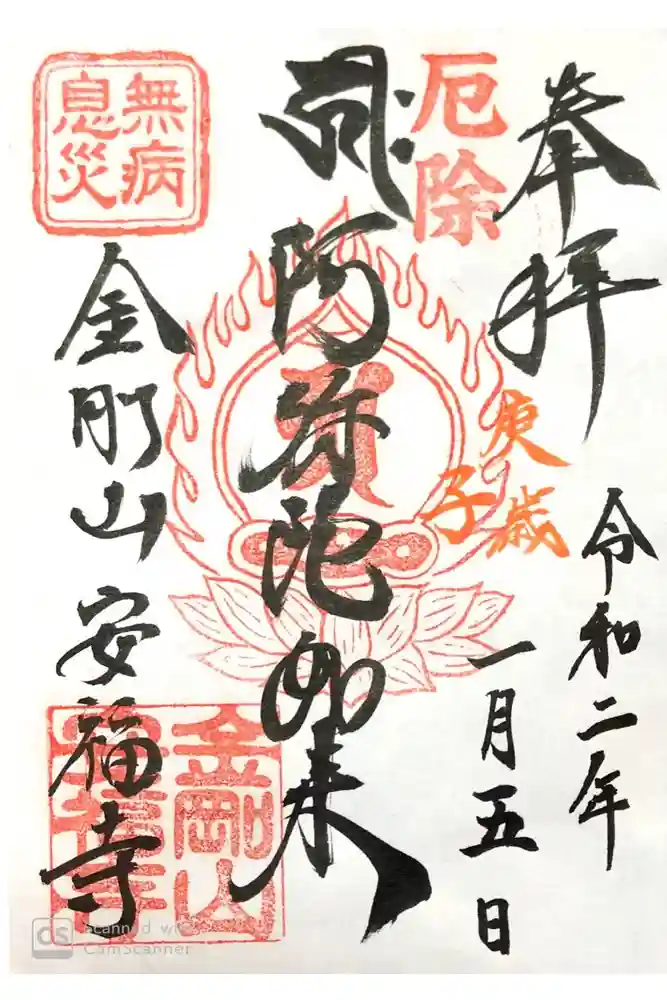 奉拝
令和二年
一月五日
庚子歳
厄除
阿弥陀如来
無病
息災
金剛山 安福寺
金剛山
安福寺
Scanned with
CamScanner